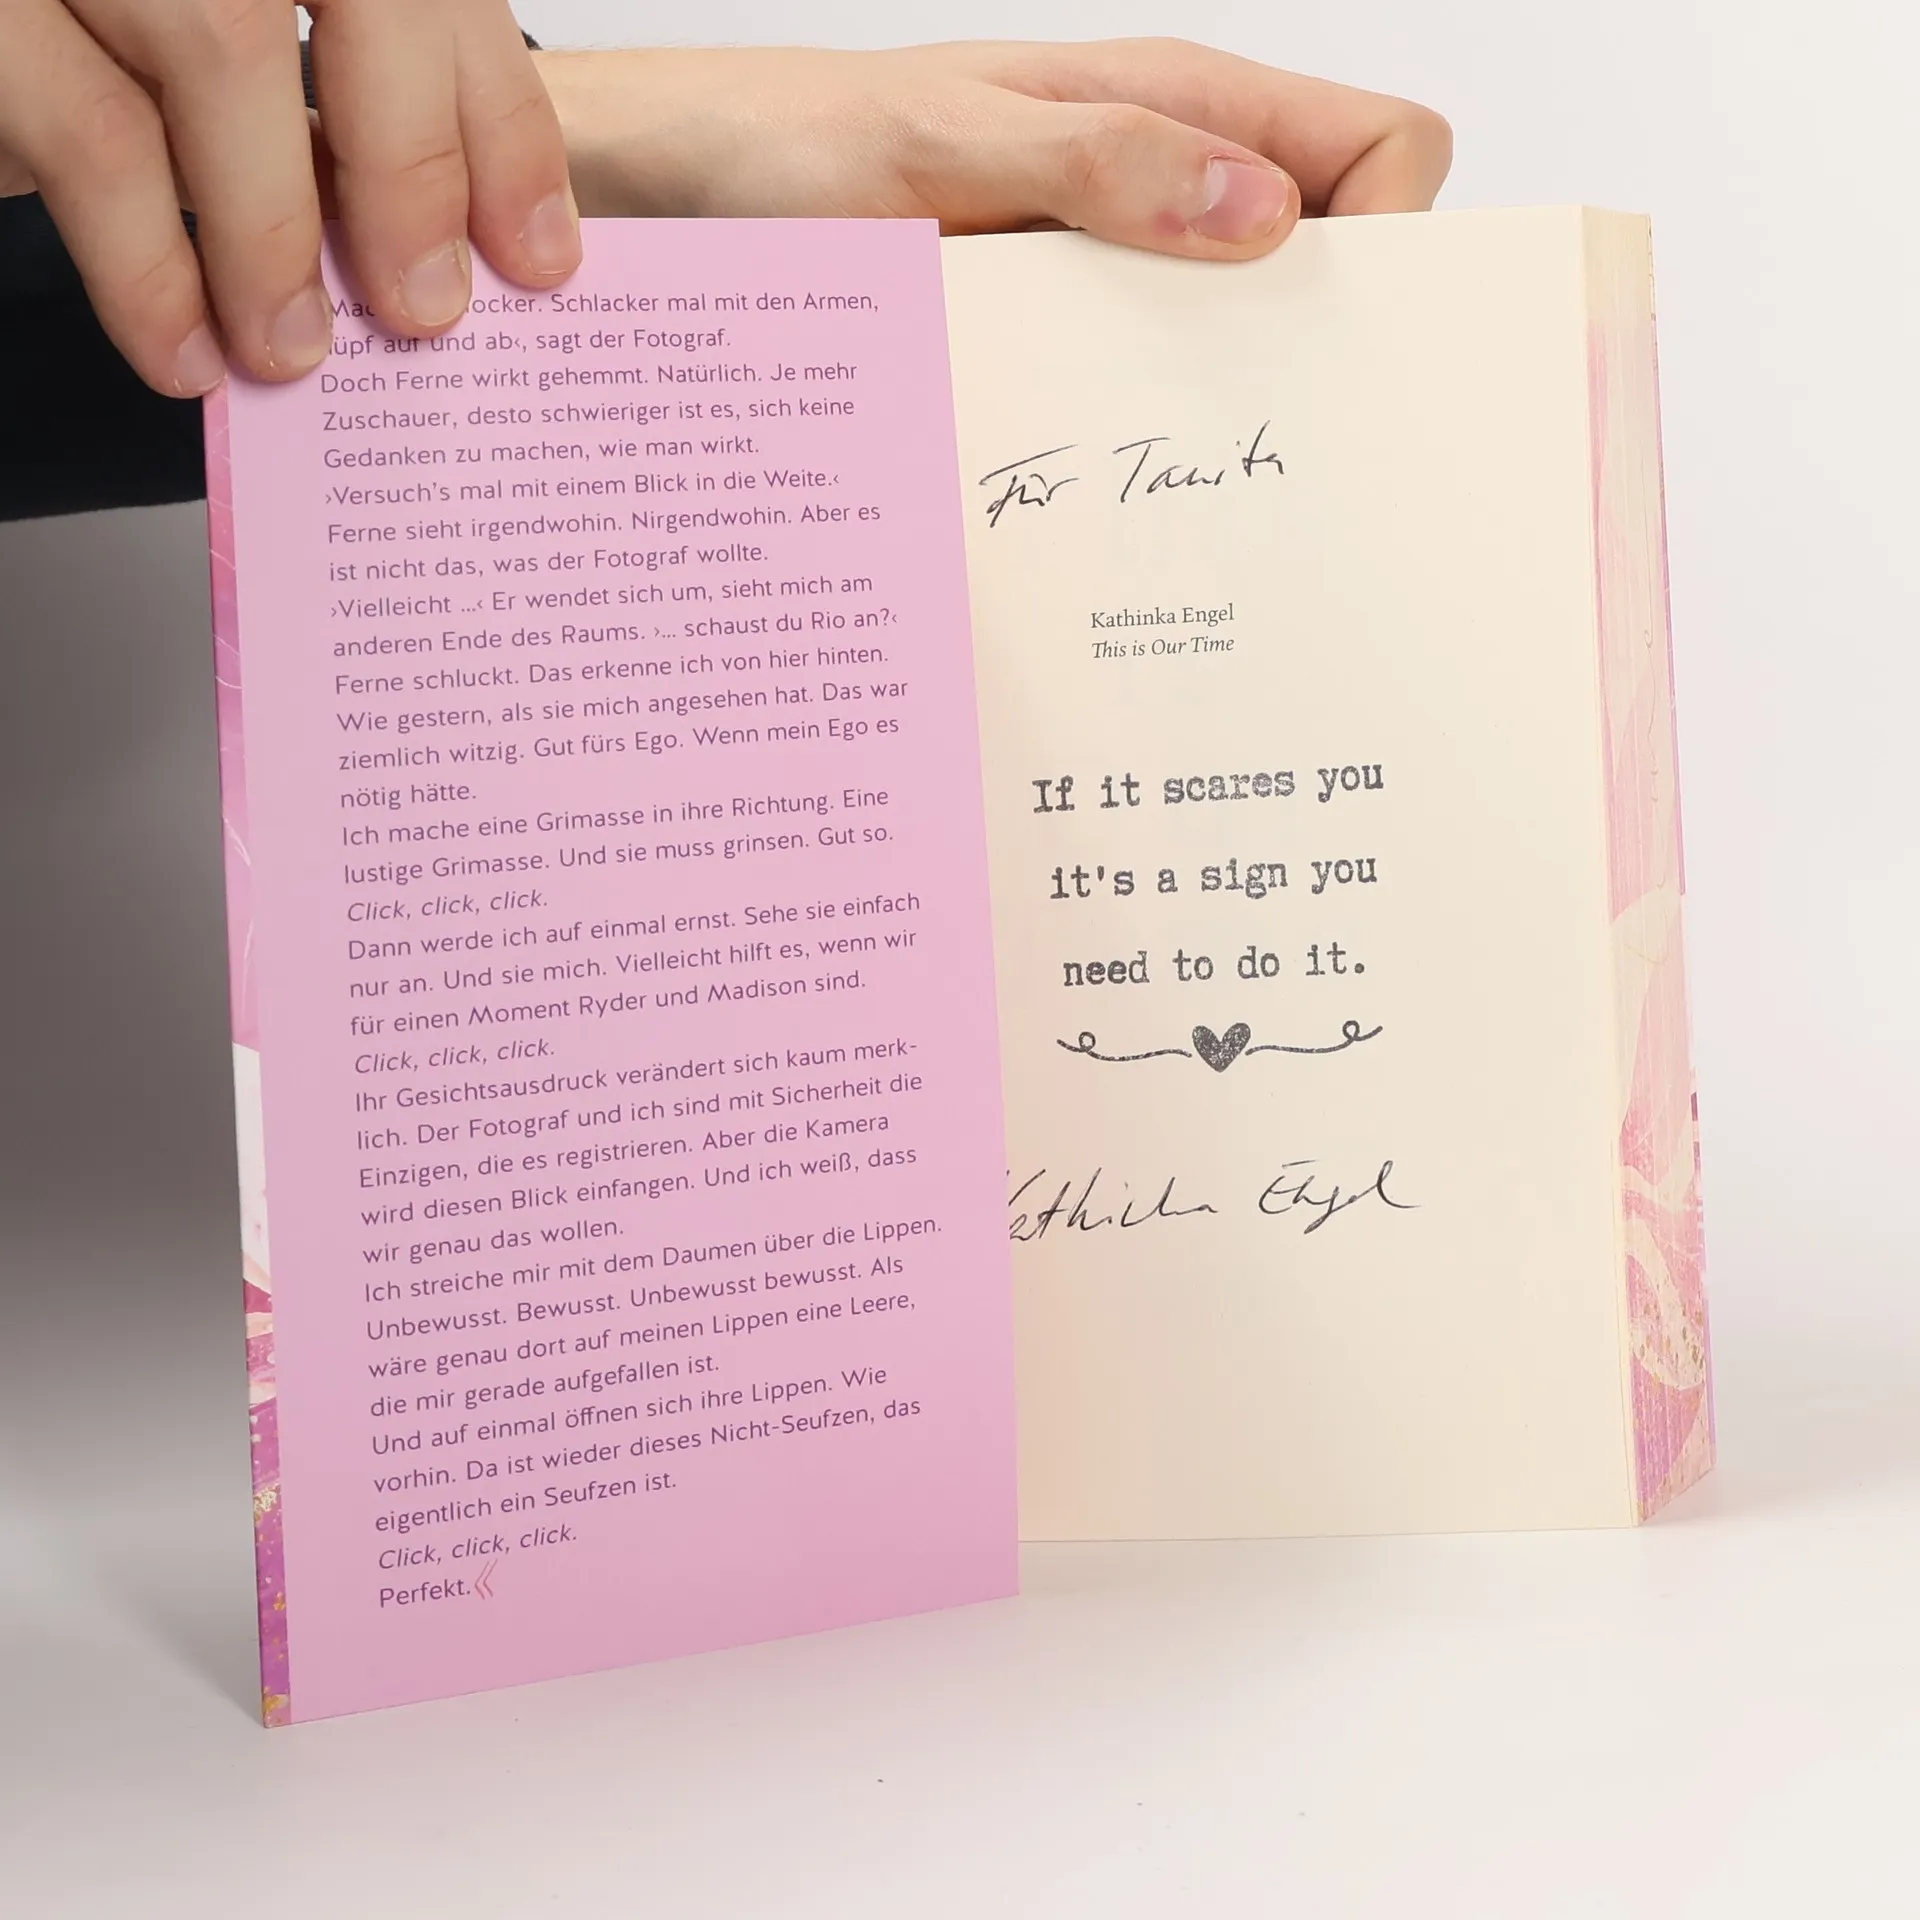 Schlacker mal mit den Armen,
auf und ab‹, sagt der Fotograf.
Doch Ferne wirkt gehemmt. Natürlich. Je mehr
Zuschauer, desto schwieriger ist es, sich keine
Gedanken zu machen, wie man wirkt.
›Versuch’s mal mit einem Blick in die Weite.‹
Ferne sieht irgendwohin. Nirgendwohin. Aber es
ist nicht das, was der Fotograf wollte.
›Vielleicht ...‹ Er wendet sich um, sieht mich am
anderen Ende des Raums. ›... schaust du Rio an?‹
Ferne schluckt. Das erkenne ich von hier hinten.
Wie gestern, als sie mich angesehen hat. Das war
ziemlich witzig. Gut fürs Ego. Wenn mein Ego es
nötig hätte.
Ich mache eine Grimasse in ihre Richtung. Eine
lustige Grimasse. Und sie muss grinsen. Gut so.
Click, click, click.
Dann werde ich auf einmal ernst. Sehe sie einfach
nur an. Und sie mich. Vielleicht hilft es, wenn wir
für einen Moment Ryder und Madison sind.
Click, click, click.
Ihr Gesichtsausdruck verändert sich kaum merk-
lich. Der Fotograf und ich sind mit Sicherheit die
Einzigen, die es registrieren. Aber die Kamera
wird diesen Blick einfangen. Und ich weiß, dass
wir genau das wollen.
Ich streiche mir mit dem Daumen über die Lippen.
Unbewusst. Bewusst. Unbewusst bewusst. Als
wäre genau dort auf meinen Lippen eine Leere,
die mir gerade aufgefallen ist.
Und auf einmal öffnen sich ihre Lippen. Wie
vorhin. Da ist wieder dieses Nicht-Seufzen, das
eigentlich ein Seufzen ist.
Click, click, click.
Perfekt.«
Für Tanita
Kathinka Engel
This is Our Time
If it scares you
it's a sign you
need to do it.
Kathinka Engel